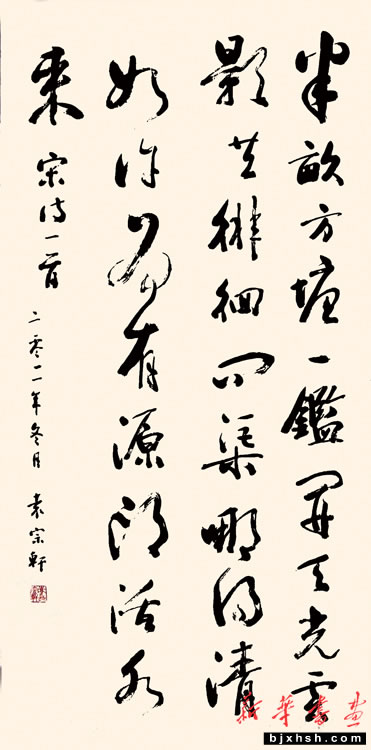 半畝方塘一鑑開天光雲
影共徘徊問渠哪得清
如許為有源頭活水
来 宋诗一首
二零一一年冬月 袁宗軒
新華書畫
bjxhsh.com